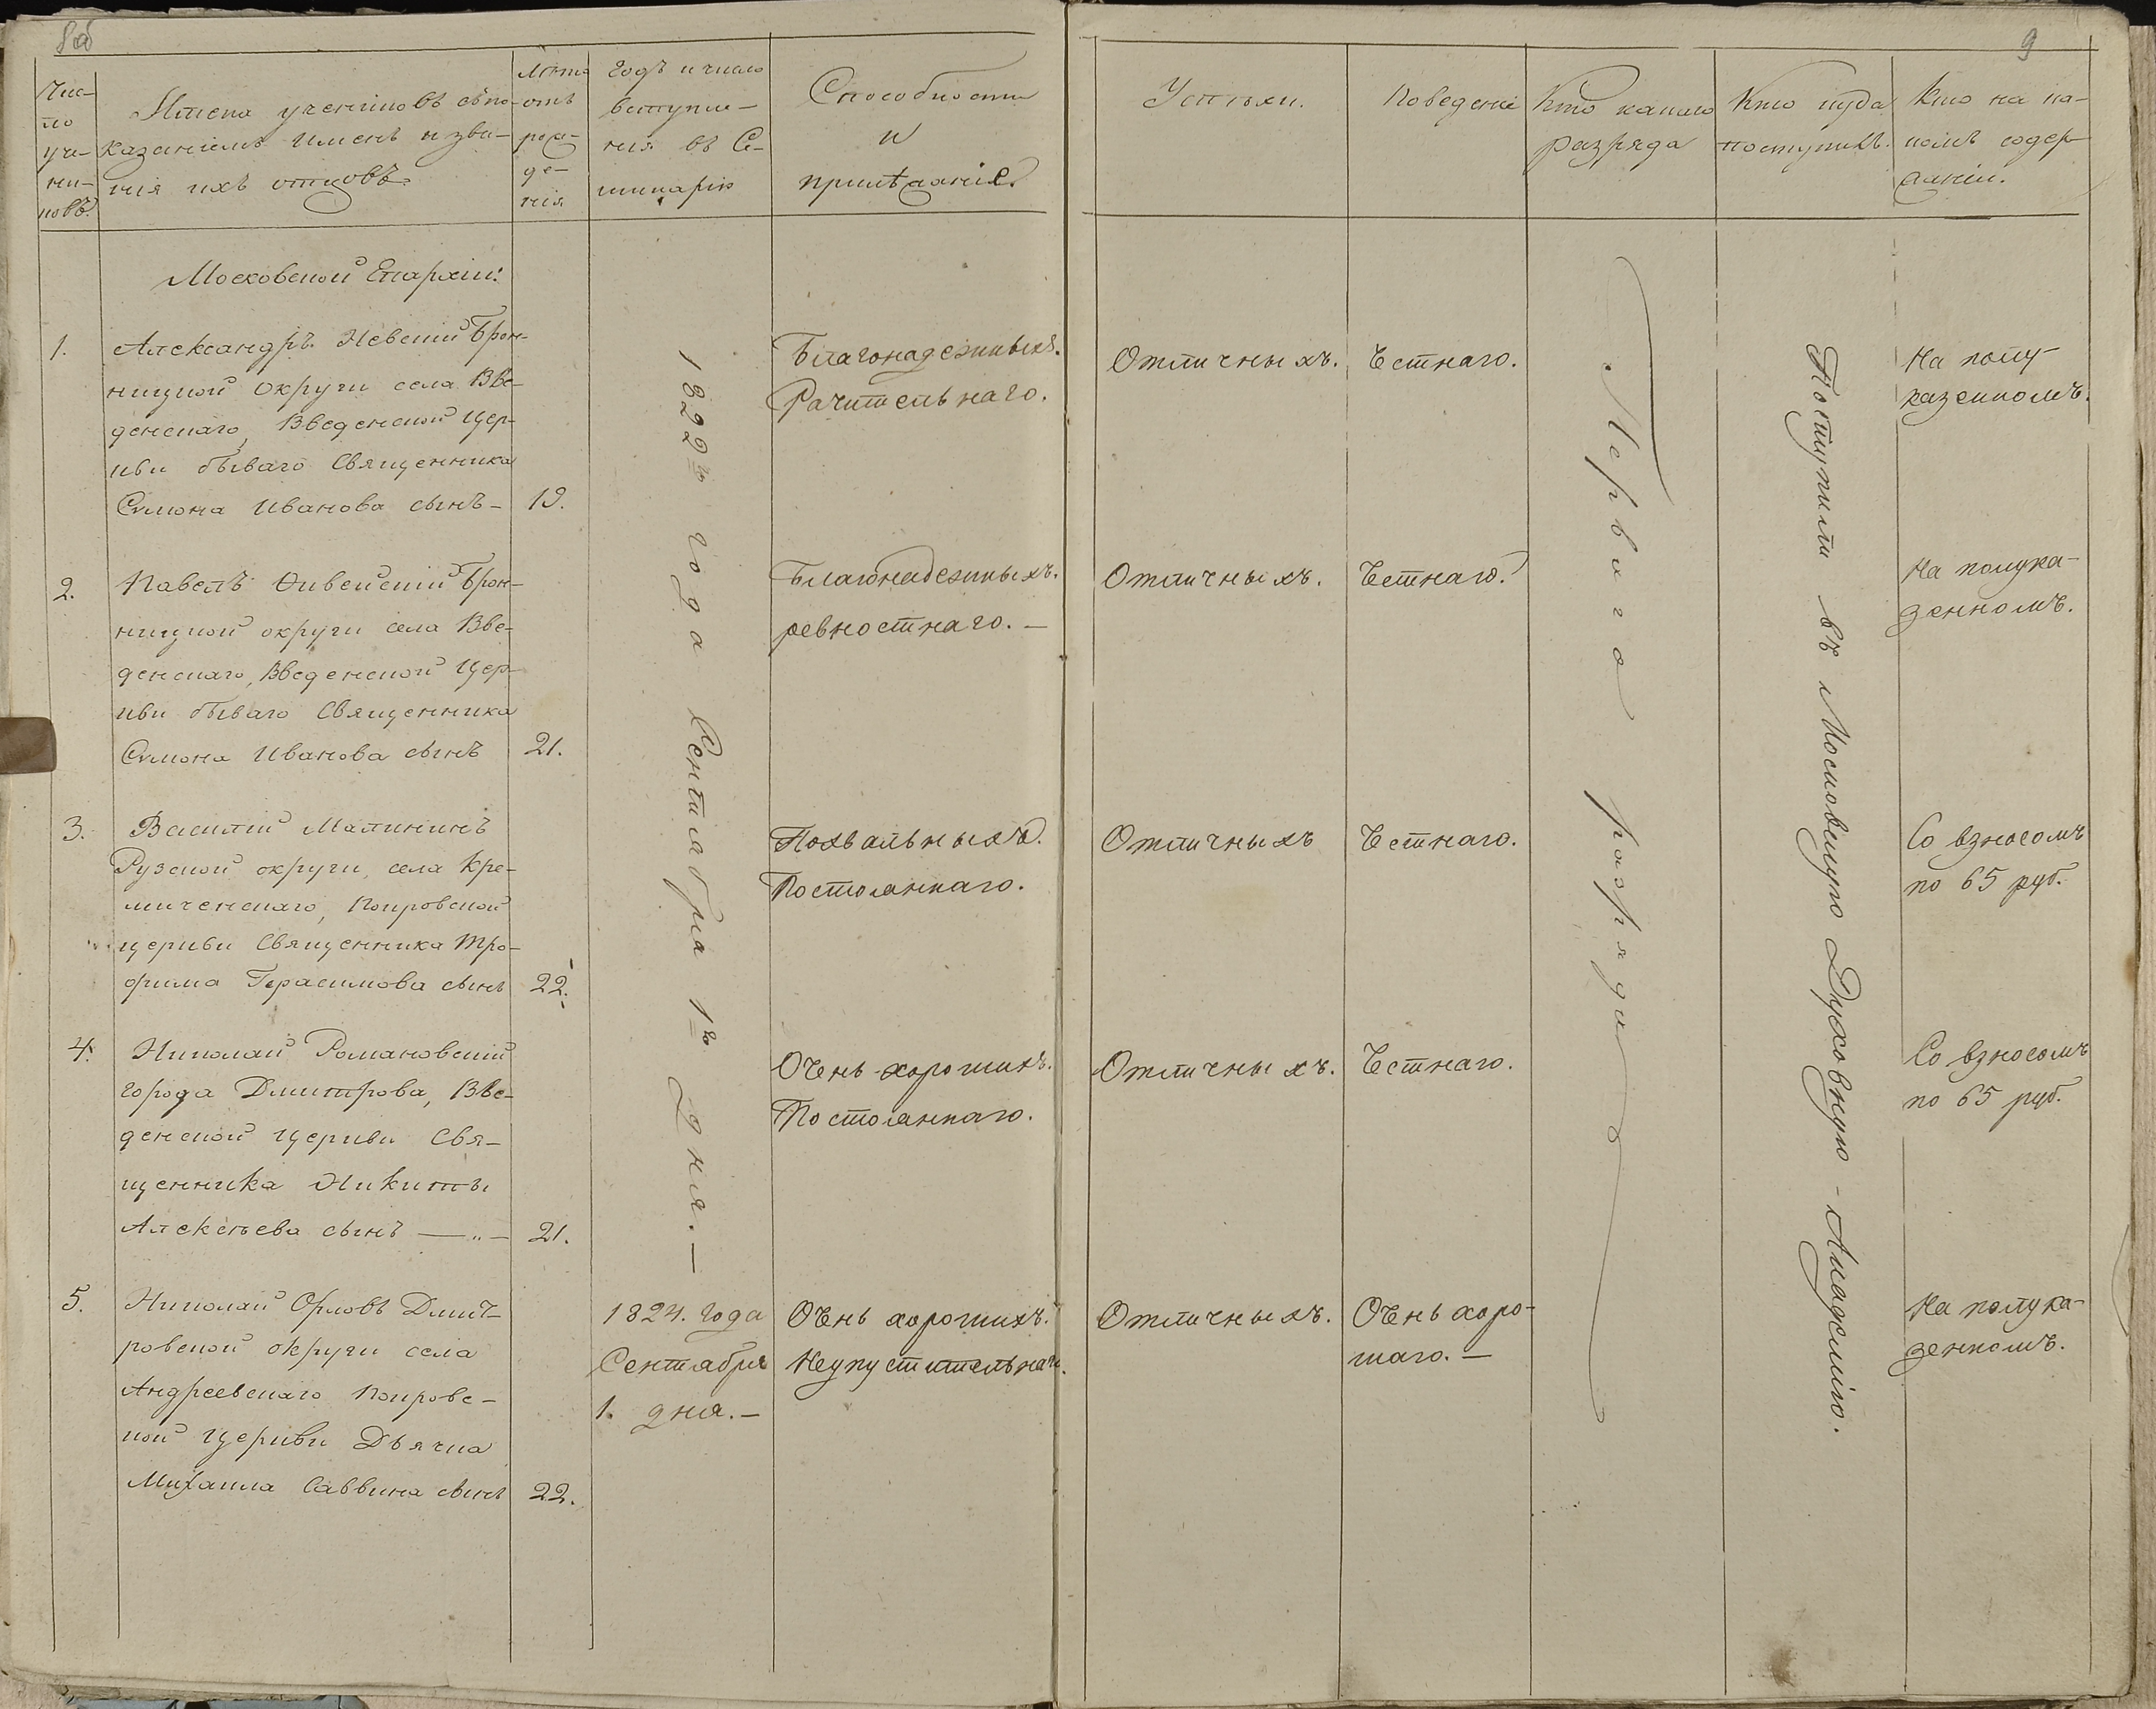 8об
9
Чис-
ло
уче-
ни-
ковъ.
Имена учениковъ съ по-
казаніемъ именъ и зва-
нія ихъ отцовъ.
Лѣта
отъ
рож-
де-
нія
Годъ и число
вступле-
нія въ Се-
минарію
Способности
и
прилѣжаніе.
Успѣхи.
Поведеніе
Кто какаго
разряда
Кто куда
поступилъ.
Кто на ка-
комъ содер-
жаніи.
Московской Епархіи:
1.
Александръ Невскій Брон-
ницкой округи села Вве-
денскаго, Введенской Цер-
кви бываго Священника
Симона Иванова сынъ –
19.
1822го года Сентября 1го дня. –
Благонадежныхъ.
Рачительнаго.
Отличныхъ.
Честнаго.
Перваго разряда
Поступили въ Московскую Духовную – Академію.
На полу-
казенномъ.
2.
Павелъ Ѳивейскій Брон-
ницкой округи села Вве-
денскаго, Введенской Цер-
кви бываго Священника
Симона Иванова сынъ
21.
Благонадежныхъ.
ревностнаго. –
Отличныхъ.
Честнаго.
На полука-
зенномъ.
3.
Василій Малининъ
Рузской округи, села Кре-
миченскаго, Покровской
церкви Священника Тро-
фима Герасимова сынъ
22.
Похвальныхъ.
Постояннаго.
Отличныхъ
Честнаго.
Со взносомъ
по 65 руб.
4.
Николай Романовскій
города Дмитрова, Вве-
денской церкви Свя-
щенника Никиты
Алексѣева сынъ — „ —
21.
Очень хорошихъ.
Постояннаго.
Отличныхъ.
Честнаго.
Со взносомъ
по 65 руб.
5.
Николай Орловъ Дмит-
ровской округи села
Андреевскаго Покровс-
кой церкви Дьячка
Михаила Саввина сынъ
22.
1824. года
Сентября
1. дня. –
Очень хорошихъ.
Неупустительнаго.
Отличныхъ.
Очень хоро-
шаго. –
На полука-
зенномъ.